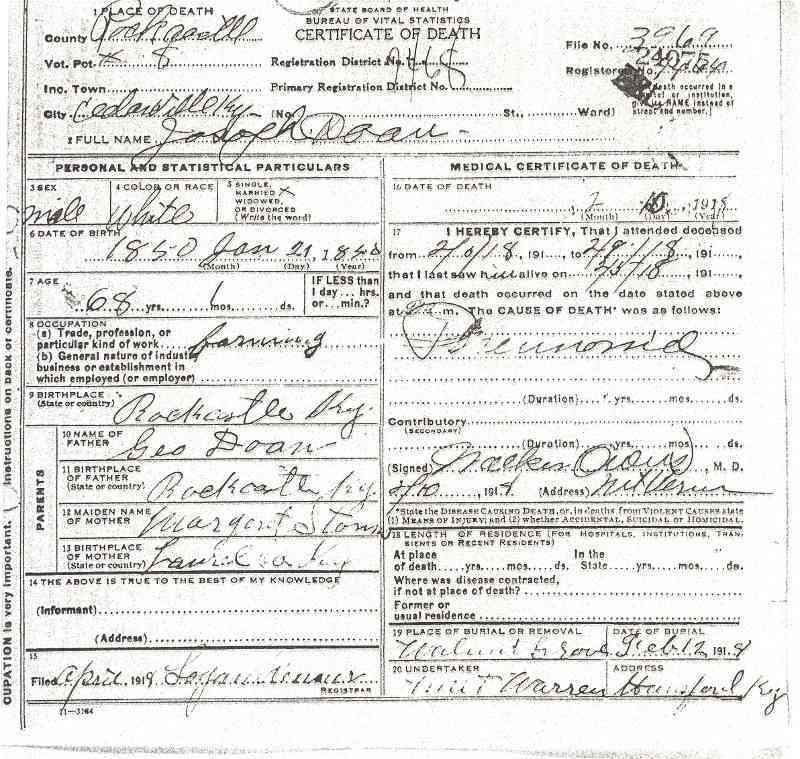 1 PLACE OF DEATH
STATE BOARD OF HEALTH
BUREAU OF VITAL STATISTICS
CERTIFICATE OF DEATH
County
Vot. Pct # 8
Inc. Town
City Ky
Registration District No.
Primary Registration District No. 7468
(No. St., Ward)
File No. 3969
Registered No.
death occurred in a
or institution,
give its NAME instead of
street and number.]
2 FULL NAME Joseph Doan
PERSONAL AND STATISTICAL PARTICULARS
3 SEX
male
4 COLOR OR RACE
White
5 SINGLE,
MARRIED X
WIDOWED,
OR DIVORCED
(Write the word)
6 DATE OF BIRTH
1850 Jan 21, 1850
(Month) (Day) (Year)
7 AGE
68 yrs. 1 mos. ds.
IF LESS than
1 day... hrs.
or... min.?
8 OCCUPATION
(a) Trade, profession, or
particular kind of work farming
(b) General nature of industry
business or establishment in
which employed (or employer)
9 BIRTHPLACE
(State or country) Rockcastle Ky.
PARENTS
10 NAME OF
FATHER Geo Doan
11 BIRTHPLACE
OF FATHER
(State or country) Rockcastle Ky.
12 MAIDEN NAME
OF MOTHER Margaret
13 BIRTHPLACE
OF MOTHER
(State or country) Laurel Ky
14 THE ABOVE IS TRUE TO THE BEST OF MY KNOWLEDGE
(Informant)
(Address)
15
Filed April, 1918
REGISTRAR
11-3184
MEDICAL CERTIFICATE OF DEATH
16 DATE OF DEATH
2 10, 1918
(Month) (Day) (Year)
17 I HEREBY CERTIFY, That I attended deceased
from 191, to 191,
that I last saw him alive on 191,
and that death occurred on the date stated above
at m. The CAUSE OF DEATH* was as follows:
Pneumonia
(Duration) yrs. mos. ds.
Contributory
(SECONDARY)
(Duration) yrs. mos. ds.
(Signed) M. D.
2/10 191 (Address) Mt Vernon
*State the DISEASE CAUSING DEATH, or, in deaths from VIOLENT CAUSES state
(1) MEANS OF INJURY; and (2) whether ACCIDENTAL, SUICIDAL or HOMICIDAL.
18 LENGTH OF RESIDENCE (FOR HOSPITALS, INSTITUTIONS, TRAN-
SIENTS OR RECENT RESIDENTS)
At place In the
of death yrs. mos. ds. State yrs. mos. ds.
Where was disease contracted,
if not at place of death?
Former or
usual residence
19 PLACE OF BURIAL OR REMOVAL
Walnut Grove
DATE OF BURIAL
Feb 12, 1918
20 UNDERTAKER
Warren
ADDRESS
Hansford Ky
OUPATION is very important. Instructions on back of certificate.